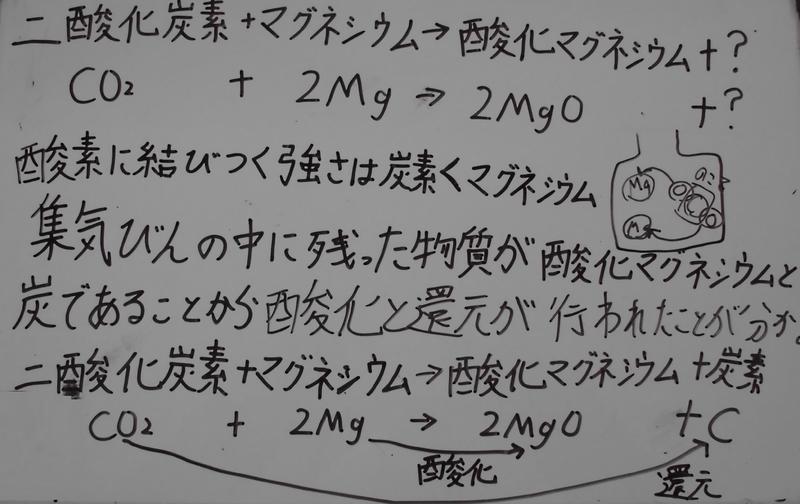 二酸化炭素+マグネシウム→酸化マグネシウム+?
CO₂ + 2Mg → 2MgO +?
酸素に結びつく強さは炭素<マグネシウム
Mg
集気びんの中に残った物質が酸化マグネシウムと
炭であることから酸化と還元が行われたことが分か。
二酸化炭素+マグネシウム→酸化マグネシウム+炭素
CO₂ + 2Mg → 2MgO +C
酸化
還元